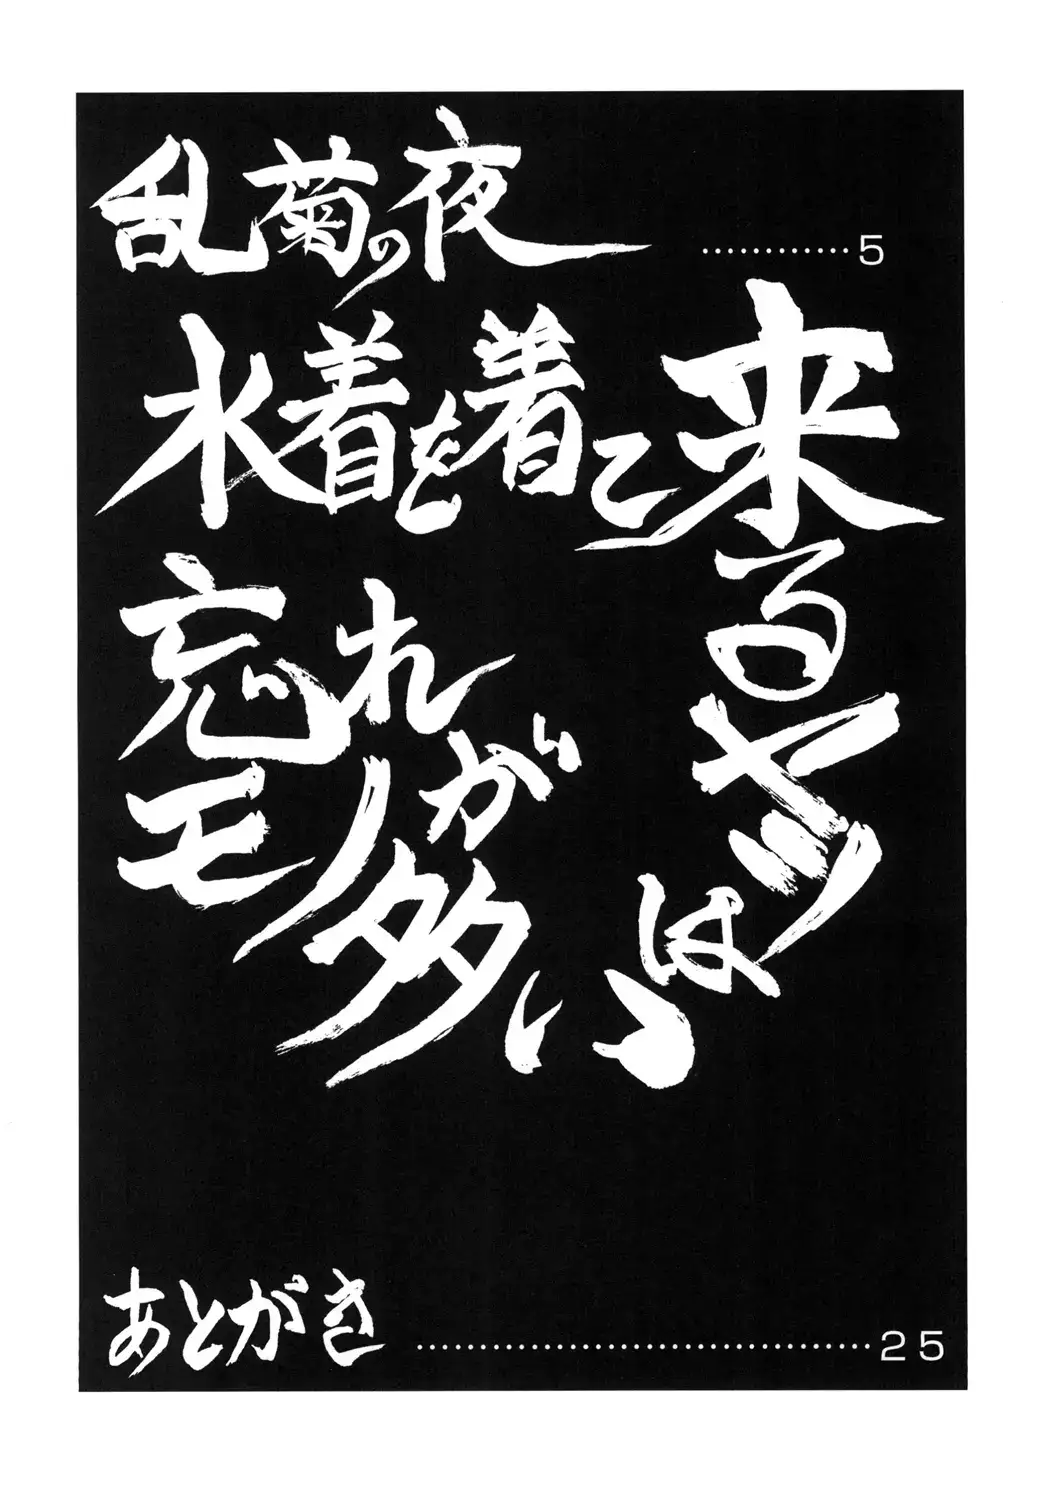 乱菊の夜 …………5
水着を着て来るヤツは
忘れモノが多いっ
あとがき ……………………………………25